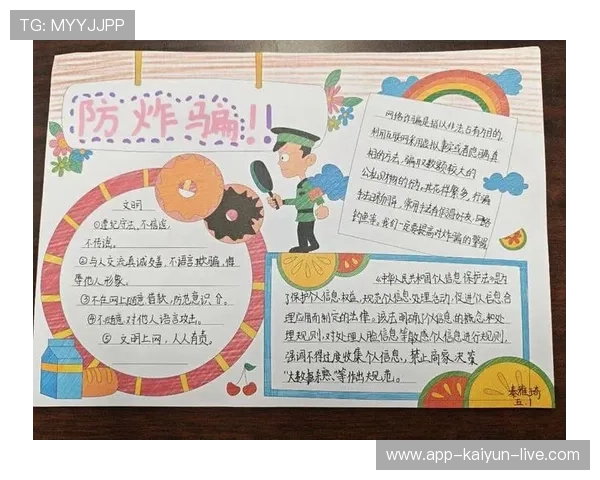 TG: MYYJJPP
防炸骗!!
文明
①遵纪守法,不信谣,
不传谣。
②与人交流真诚友善,不语言欺骗,
等他人形象。
③不在网上随意
④不随意对他人语言攻击。
⑤ 文明上网,人人有责。
网络诈骗是指以非法占有为目的,
利用互联网采用虚拟事实或者隐瞒真
相的方法,骗取数额较大的
公私财物的行为。其花样繁多,行骗
手法
钓鱼等。我们一定要提高对诈骗的警惕
《中华人民共和国个人信息保护法》是为
了保护个人信息权益,规范个人信息处理活动,促进个人信息合
理应用而制定的法律。该法明确了个人信息的概念和处
理规则,对处理人脸信息等敏感个人信息进行规则,
强调不得过度收集个人信息,禁止商家
"大数据杀熟"等作出
秦雅琦
五.1
www.app-kaiyun-live.com